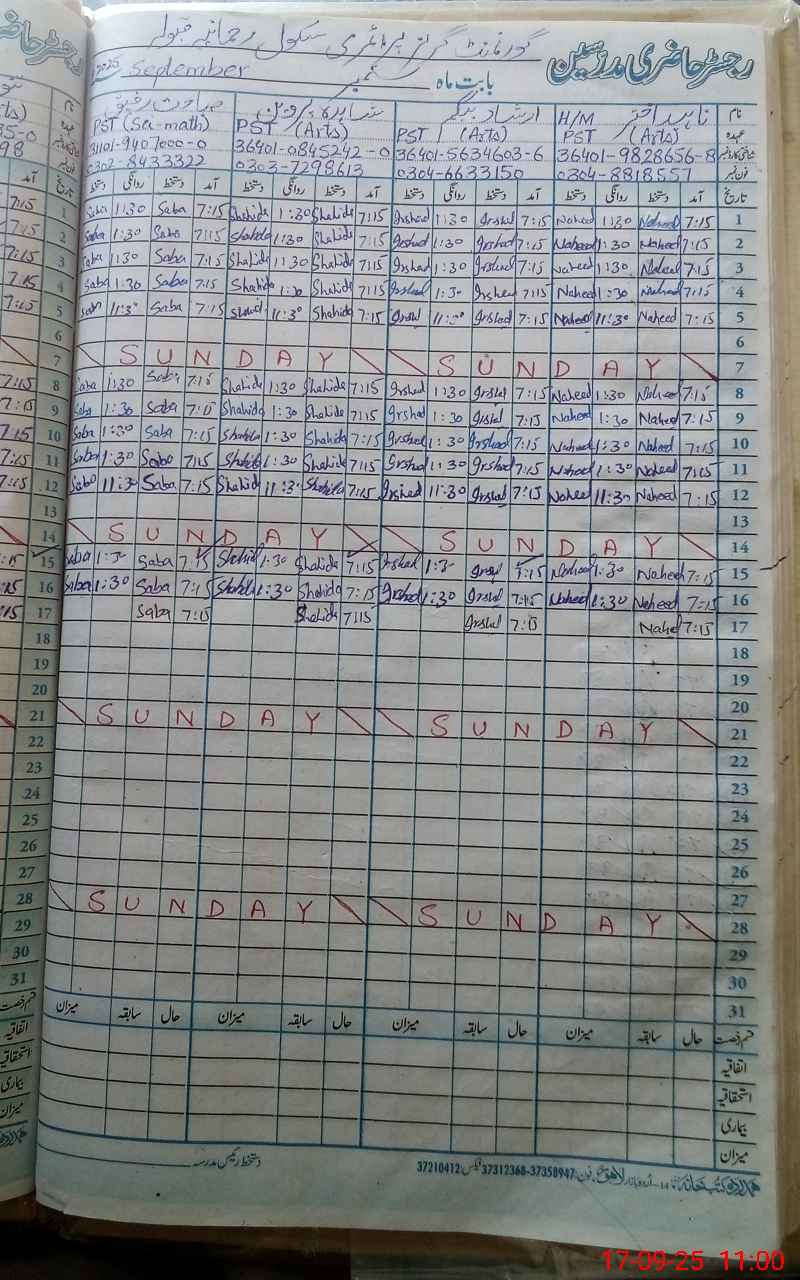 رجسٹر حاضری مدرسین
گورنمنٹ گرلز پرائمری سکول رحمانیہ قبولہ
بابت ماہ ستمبر September 2025
نام ناہید اختر ارشاد بیگم شاہدہ پروین صباحت رفیق
عہدہ H/M PST (Arts) PST (Arts) PST (Arts) PST (Sci-math)
36401-9828656-8 36401-5634603-6 36401-0845242-0 31101-9407000-0
فون نمبر 0304-8818557 0304-6633150 0303-7298613 0302-8433322
تاریخ آمد دستخط روانگی دستخط آمد دستخط روانگی دستخط آمد دستخط روانگی دستخط آمد دستخط روانگی دستخط
1 7:15 Naheed 1:30 Naheed 7:15 Irshad 1:30 Irshad 7:15 Shahida 1:30 Shahida 7:15 Saba 1:30 Saba
2 7:15 Naheed 1:30 Naheed 7:15 Irshad 1:30 Irshad 7:15 Shahida 1:30 Shahida 7:15 Saba 1:30 Saba
3 7:15 Naheed 1:30 Naheed 7:15 Irshad 1:30 Irshad 7:15 Shahida 1:30 Shahida 7:15 Saba 1:30 Saba
4 7:15 Naheed 1:30 Naheed 7:15 Irshad 1:30 Irshad 7:15 Shahida 1:30 Shahida 7:15 Saba 1:30 Saba
5 7:15 Naheed 11:30 Naheed 7:15 Irshad 11:30 Irshad 7:15 Shahida 11:30 Shahida 7:15 Saba 11:30 Saba
6
7 SUNDAY SUNDAY
8 7:15 Naheed 1:30 Naheed 7:15 Irshad 1:30 Irshad 7:15 Shahida 1:30 Shahida 7:15 Saba 1:30 Saba
9 7:15 Naheed 1:30 Naheed 7:15 Irshad 1:30 Irshad 7:15 Shahida 1:30 Shahida 7:15 Saba 1:30 Saba
10 7:15 Naheed 1:30 Naheed 7:15 Irshad 1:30 Irshad 7:15 Shahida 1:30 Shahida 7:15 Saba 1:30 Saba
11 7:15 Naheed 1:30 Naheed 7:15 Irshad 1:30 Irshad 7:15 Shahida 1:30 Shahida 7:15 Saba 1:30 Saba
12 7:15 Naheed 11:30 Naheed 7:15 Irshad 11:30 Irshad 7:15 Shahida 11:30 Shahida 7:15 Saba 11:30 Saba
13
14 SUNDAY SUNDAY
15 7:15 Naheed 1:30 Naheed 7:15 Irshad 1:30 Irshad 7:15 Shahida 1:30 Shahida 7:15 Saba 1:30 Saba
16 7:15 Naheed 1:30 Naheed 7:15 Irshad 1:30 Irshad 7:15 Shahida 1:30 Shahida 7:15 Saba 1:30 Saba
17 7:15 Nahed 7:15 Irshad 7:15 Shahida 7:15 Saba
18
19
20
21 SUNDAY SUNDAY
22
23
24
25
26
27
28 SUNDAY SUNDAY
29
30
31
قسم رخصت حال سابقہ میزان حال سابقہ میزان حال سابقہ میزان حال سابقہ میزان
اتفاقیہ
استحقاقیہ
بیماری
میزان
دستخط رئیس مدرسہ
ہمدرد کتب خانہ اردو بازار لاہور فون: 37358947-37312368 فیکس: 37210412
17-09-25 11:00